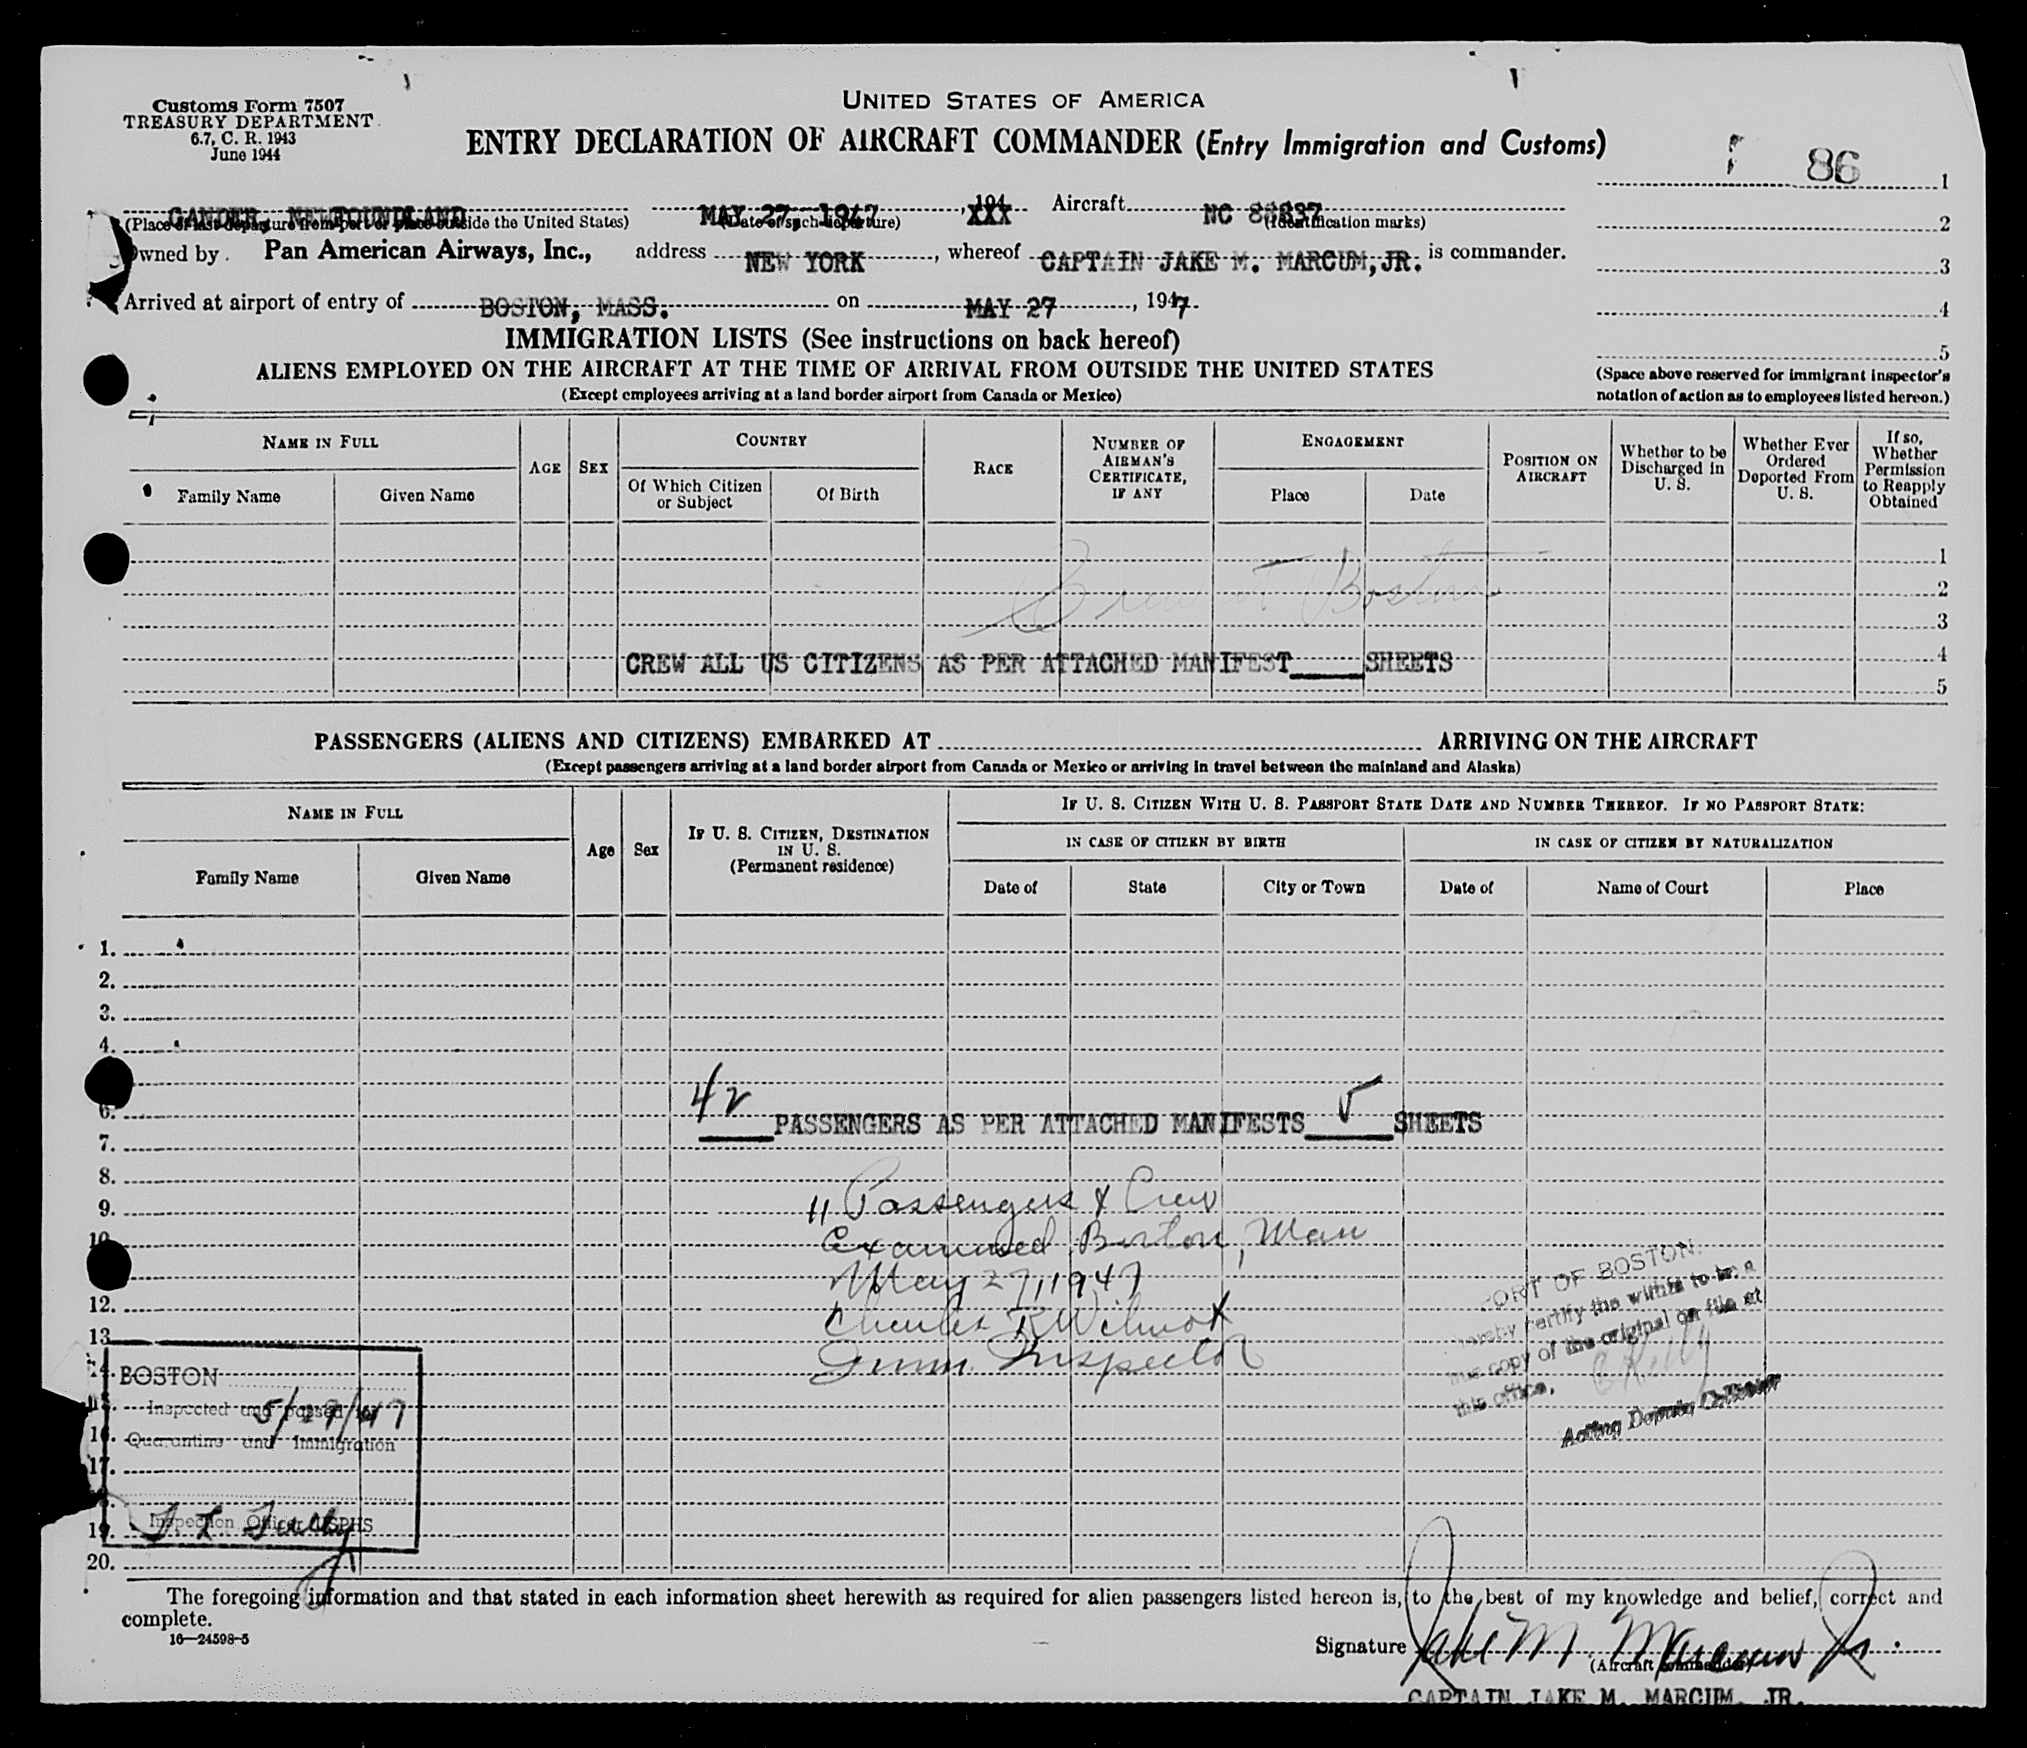 Customs Form 7507
TREASURY DEPARTMENT
6.7, C. R. 1943
June 1944
UNITED STATES OF AMERICA
ENTRY DECLARATION OF AIRCRAFT COMMANDER (Entry Immigration and Customs)
86
1
2
3
4
5
(Space above reserved for immigrant inspector's
notation of action as to employees listed hereon.)
GANDER, NEWFOUNDLAND MAY 27, 1947, 194 XXX Aircraft NC 88837
(Place of last departure from port or place outside the United States) (Date of such departure) (Identification marks)
Owned by Pan American Airways, Inc., address NEW YORK, whereof CAPTAIN JAKE M. MARCUM, JR. is commander.
Arrived at airport of entry of BOSTON, MASS. on MAY 27, 1947
IMMIGRATION LISTS (See instructions on back hereof)
ALIENS EMPLOYED ON THE AIRCRAFT AT THE TIME OF ARRIVAL FROM OUTSIDE THE UNITED STATES
(Except employees arriving at a land border airport from Canada or Mexico)
NAME IN FULL
Family Name
Given Name
AGE
SEX
COUNTRY
Of Which Citizen or Subject
Of Birth
RACE
NUMBER OF AIRMAN'S CERTIFICATE, IF ANY
ENGAGEMENT
Place
Date
POSITION ON AIRCRAFT
Whether to be Discharged in U. S.
Whether Ever Ordered Deported From U. S.
If so, Whether Permission to Reapply Obtained
1
2
Boston
3
CREW ALL US CITIZENS AS PER ATTACHED MANIFEST SHEETS
4
5
PASSENGERS (ALIENS AND CITIZENS) EMBARKED AT ARRIVING ON THE AIRCRAFT
(Except passengers arriving at a land border airport from Canada or Mexico or arriving in travel between the mainland and Alaska)
NAME IN FULL
Family Name
Given Name
Age
Sex
IF U. S. CITIZEN, DESTINATION IN U. S.
(Permanent residence)
IF U. S. CITIZEN WITH U. S. PASSPORT STATE DATE AND NUMBER THEREOF. IF NO PASSPORT STATE:
IN CASE OF CITIZEN BY BIRTH
Date of
State
City or Town
IN CASE OF CITIZEN BY NATURALIZATION
Date of
Name of Court
Place
1.
2.
3.
4.
6.
42 PASSENGERS AS PER ATTACHED MANIFESTS 5 SHEETS
7.
8.
9.
11 Passengers & Crew
10
Examined Boston, Mass
May 27, 1947
12.
Charles R Wilmot
13
Imm. Inspector
14.
15.
16.
17.
19.
20.
BOSTON
Inspected and passed 5/27/47
Quarantine and Immigration
Inspection Officer USPHS
PORT OF BOSTON.
hereby certify the within to be a
true copy of the original on file at
this office.
Acting Deputy Collector
The foregoing information and that stated in each information sheet herewith as required for alien passengers listed hereon is, to the best of my knowledge and belief, correct and
complete.
16—24598-5
Signature Jake M. Marcum Jr.
(Aircraft commander)
CAPTAIN JAKE M. MARCUM, JR.